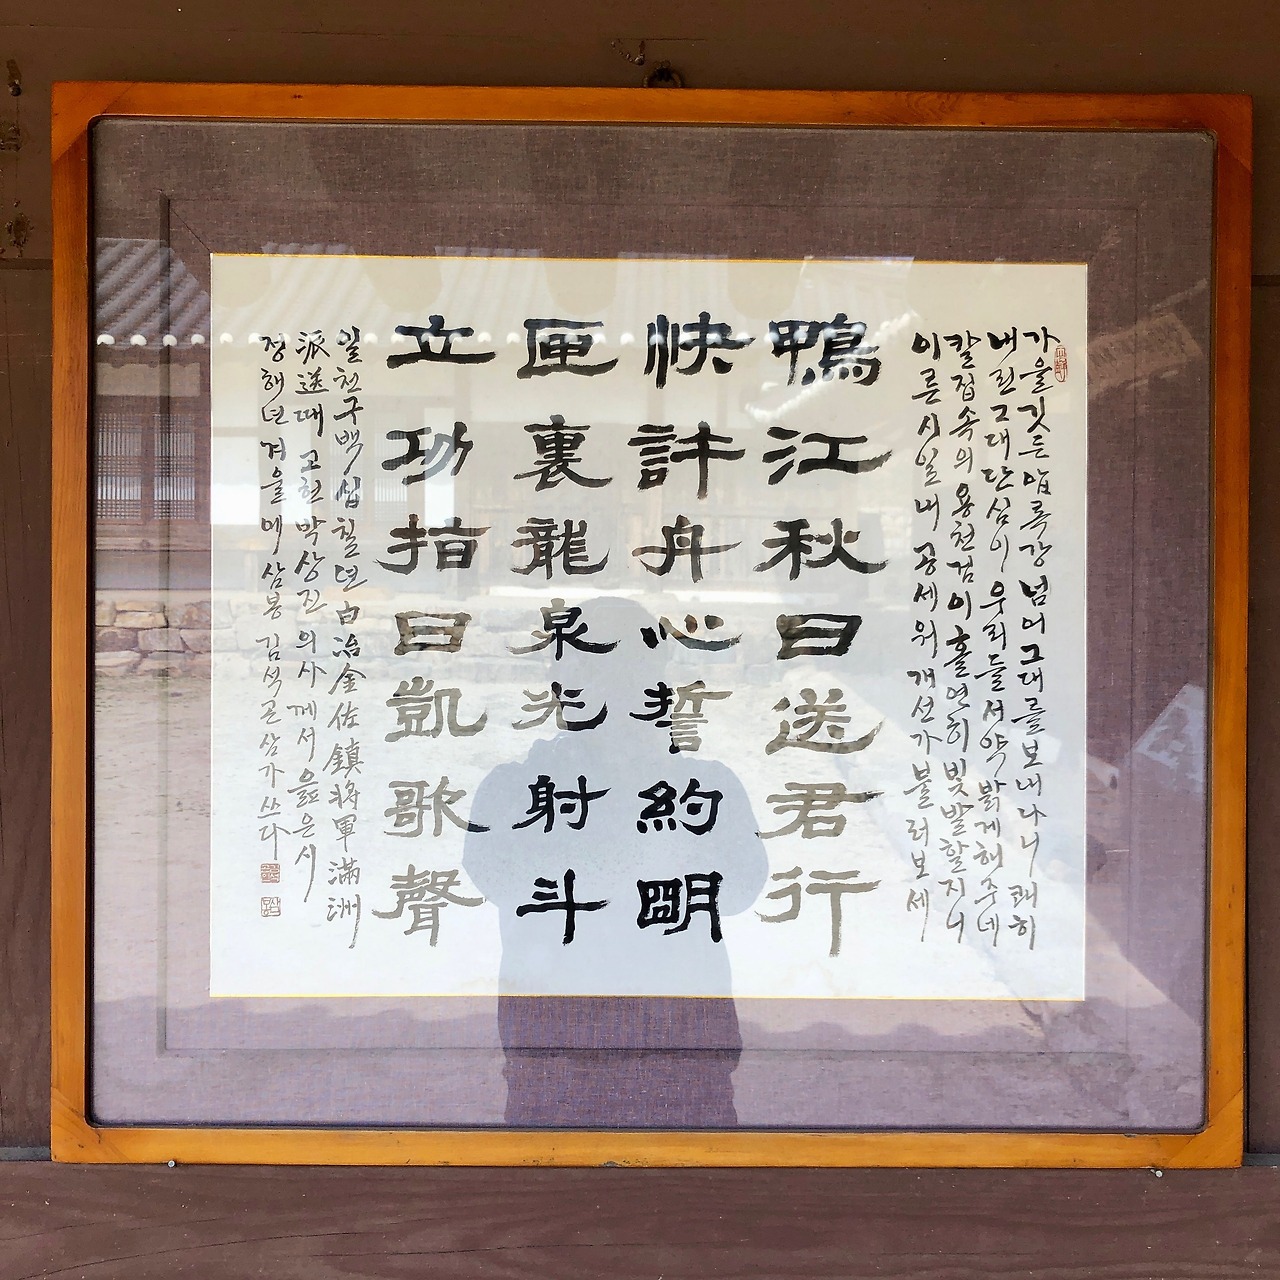 가을 깃든 압록강 넘어 그대를 보내나니 쾌히
내린 그대 단심이 우리들 서약 밝게 해주네
칼집 속의 용천검이 홀연히 빛발할지니
이른 시일 내 공세워 개선가 불러보세
鴨江秋日送君行
快許丹心誓約明
匣裏龍泉光射斗
立功指日凱歌聲
일천구백십칠년 白冶金佐鎭將軍 滿洲
派送때 고헌 박상진 의사께서 읊은 시
정해년 겨울에 삼봉 김석곤 삼가 쓰다